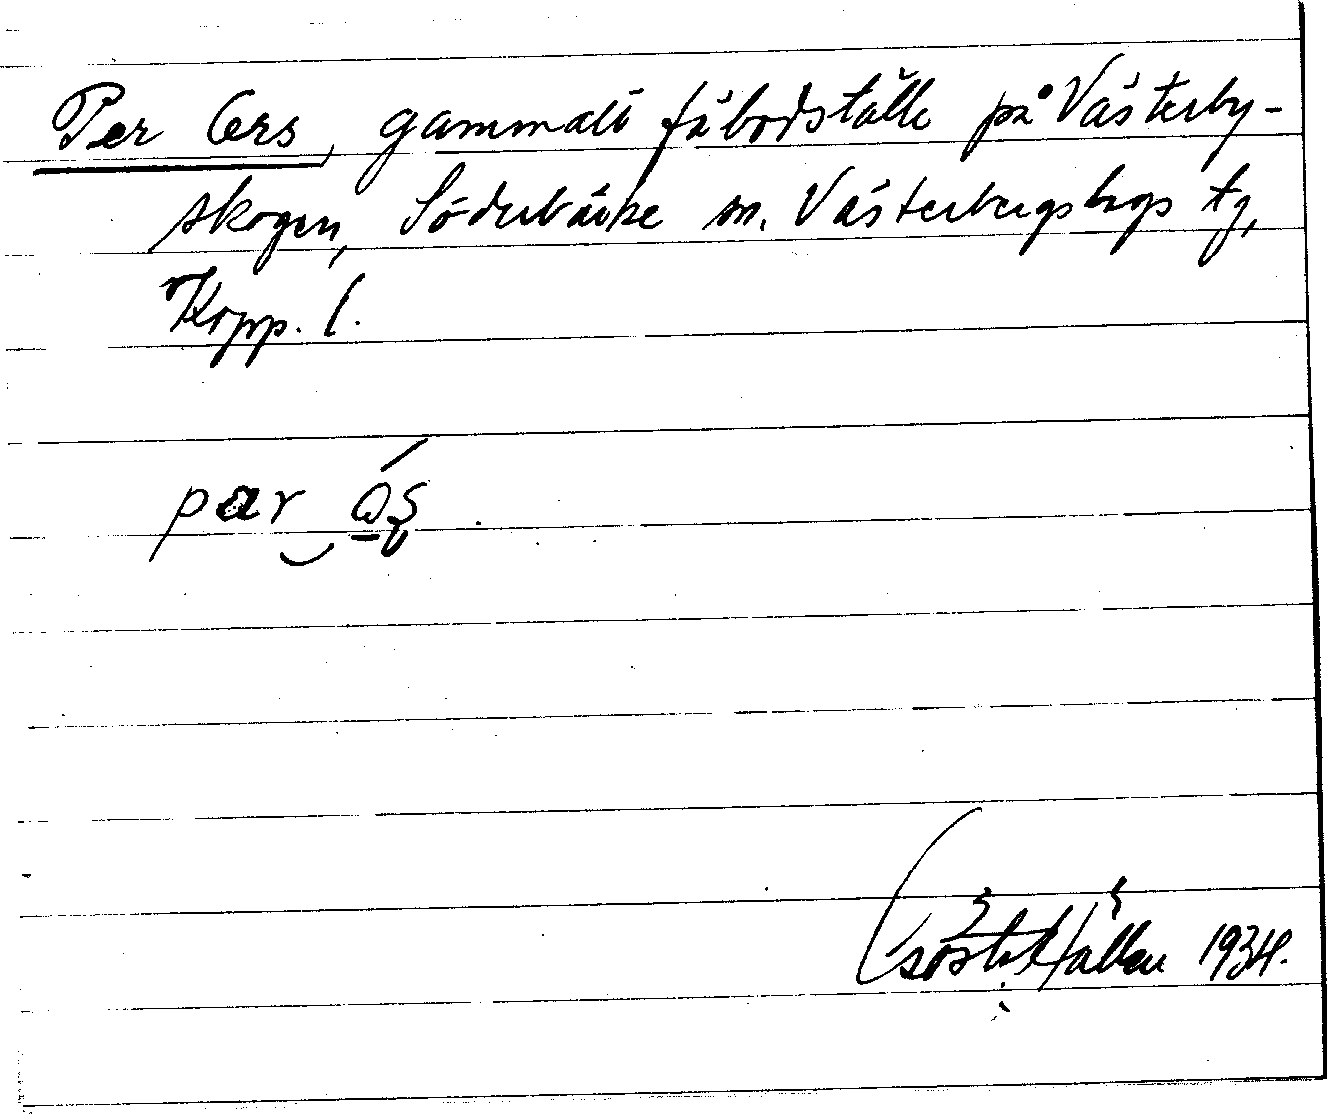 Per Ers, gammalt fäbodställe på Västerby-
skogen, Söderbärke sn. Västerbergslags tg,
Kopp. l.
par
Gösta Hallén 1934.